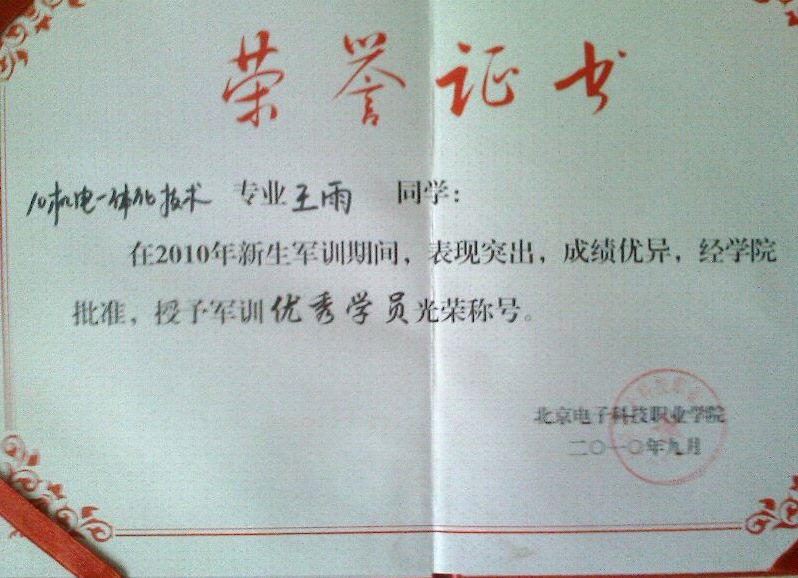 荣誉证书
10机电一体化技术 专业 王雨 同学：
在2010年新生军训期间，表现突出，成绩优异，经学院
批准，授予军训优秀学员光荣称号。
北京电子科技职业学院
二〇一〇年九月